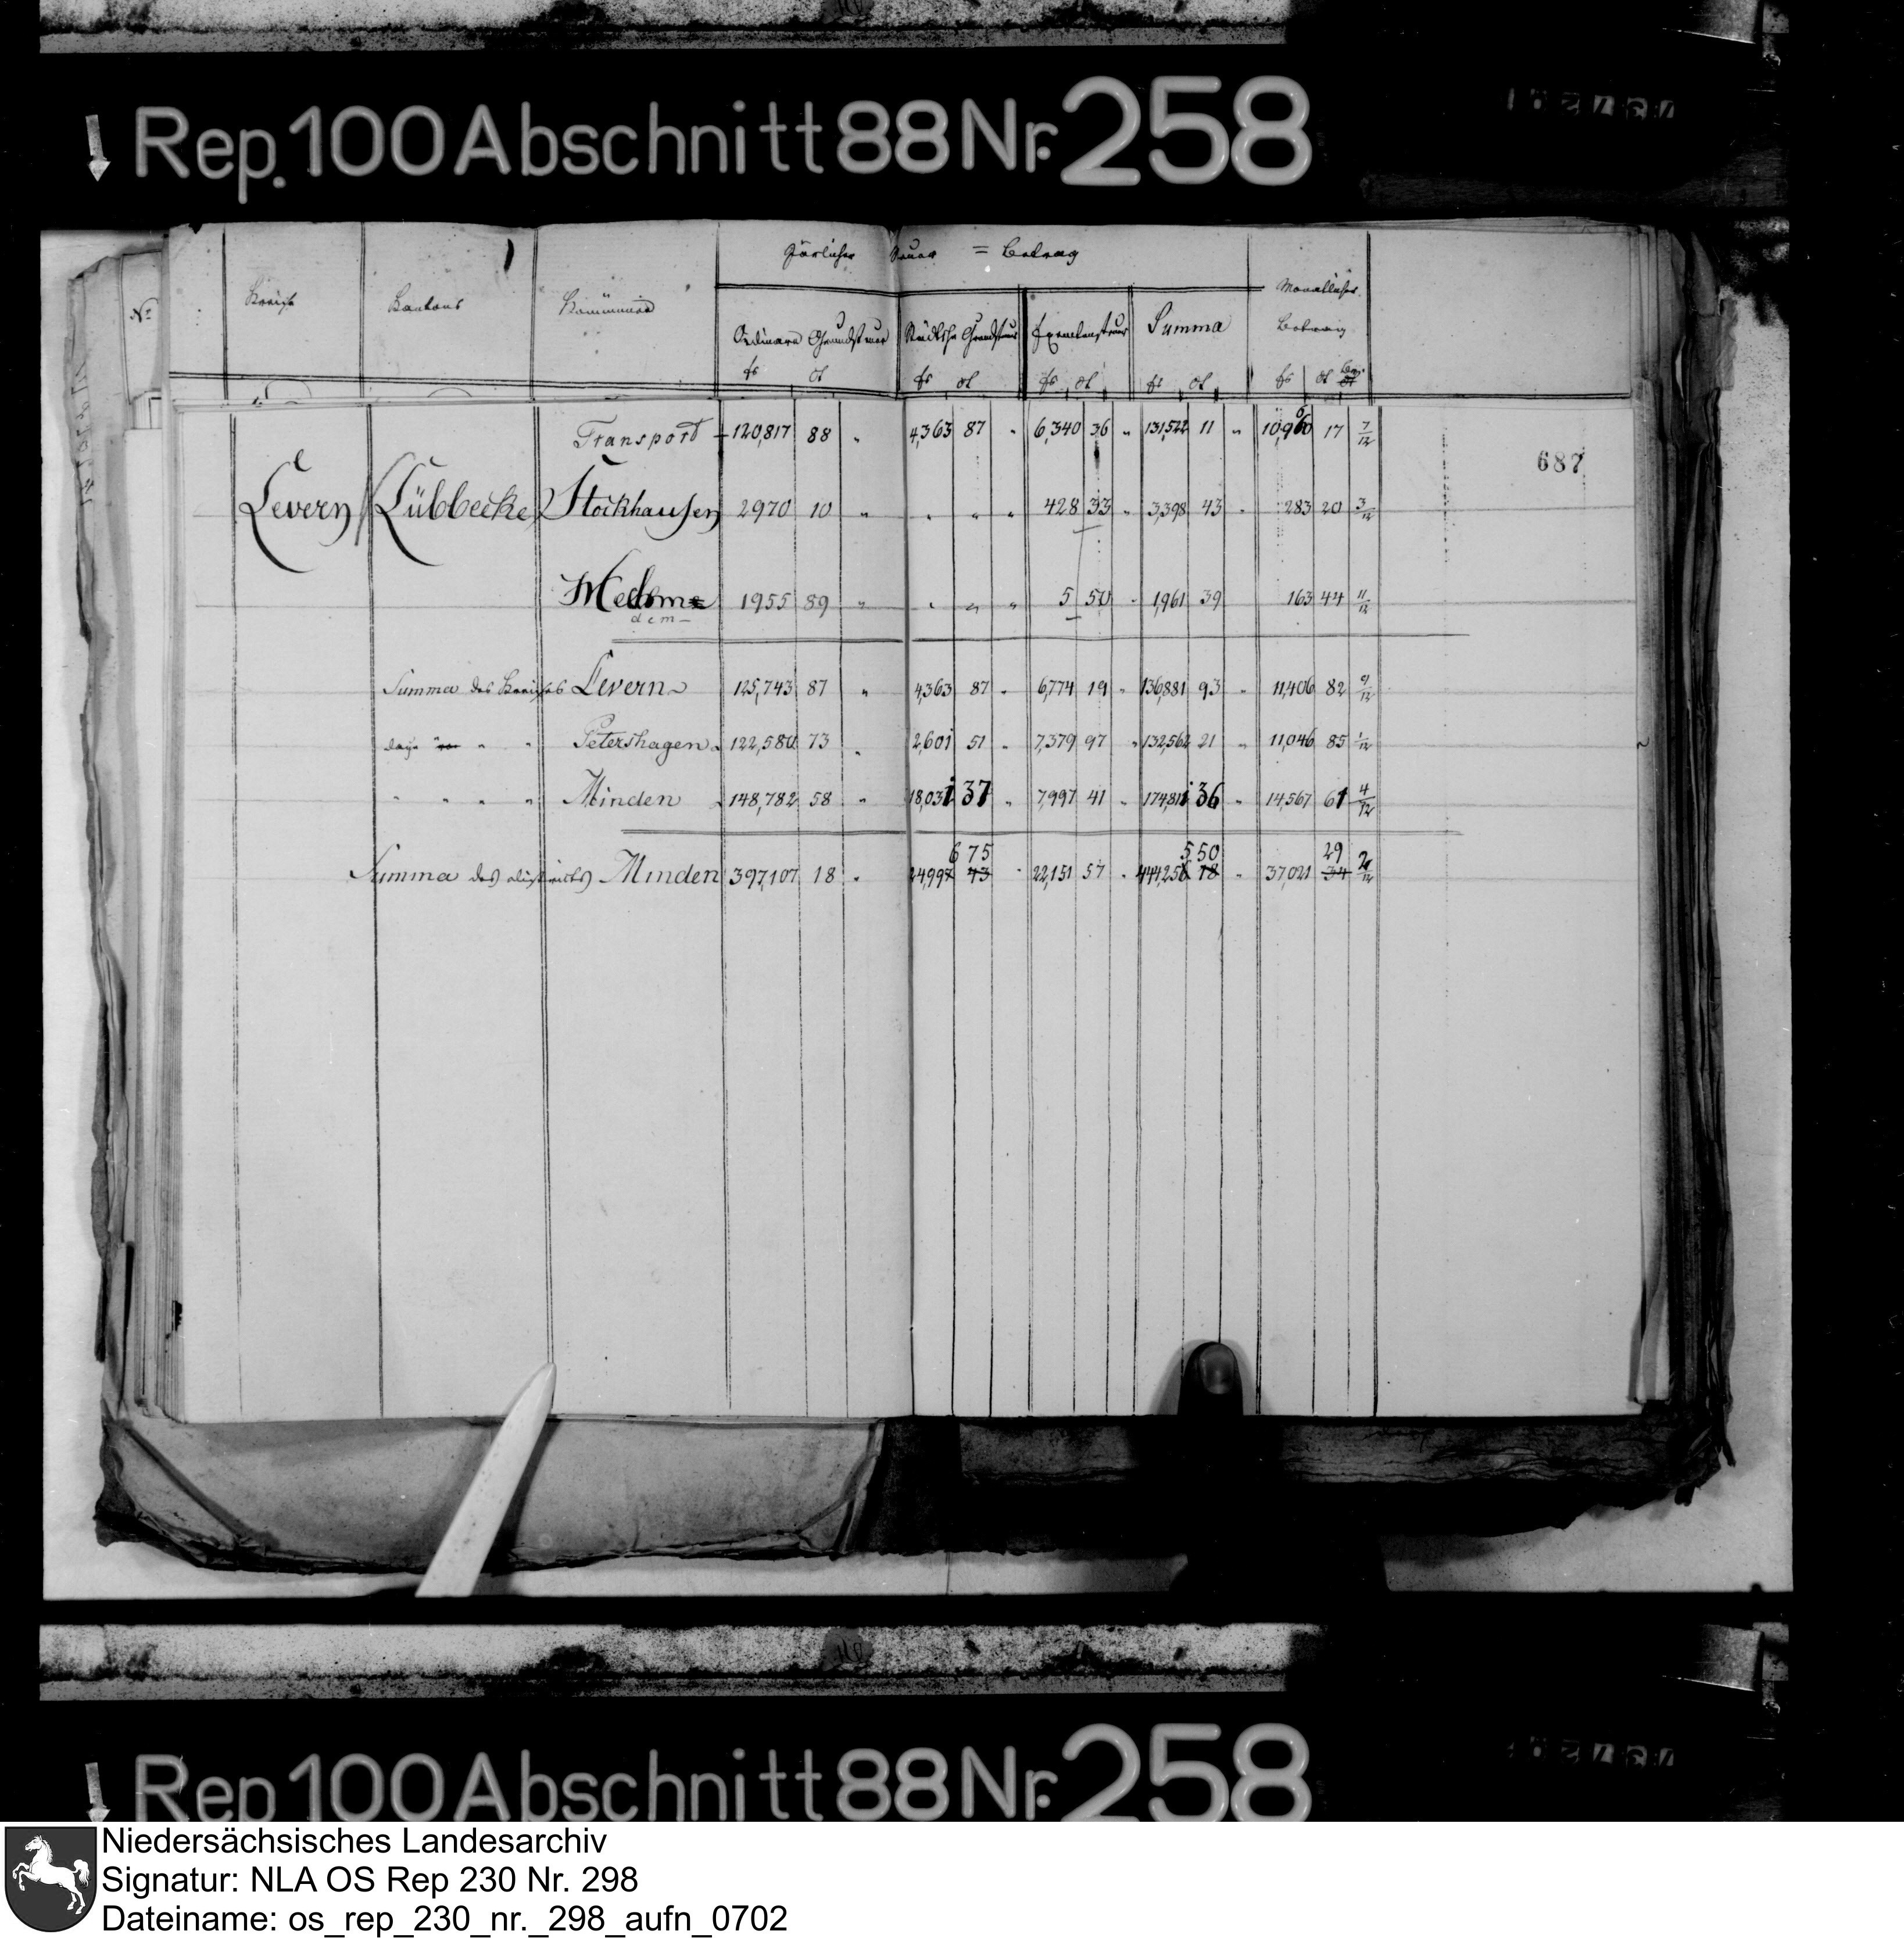 Rep. 100 Abschnitt 88 Nr. 258
Järlicher Steuer = Betrag
No Kreise Kantons Kommunen Ordinare Grundsteuer Städtsche Grundsteur Exemtensteuer Summa Monatlicher Betrag
fr ct fr ct fr ct fr ct fr ct
Transport 120,817 88 " 4,363 87 " 6,340 36 " 131,522 11 " 10,960 17 7/12
687
Levern Lübbecke Stockhausen 2970 10 " " " " 428 33 " 3,398 43 " 283 20 3/12
Mehme 1955 89 " " " " 5 50 " 1,961 39 163 44 11/12
dem
Summa des Kreises Levern 125,743 87 " 4,363 87 " 6,774 19 " 136,881 93 " 11,406 82 9/12
" " Petershagen 122,580 73 " 2,601 51 " 7,379 97 " 132,562 21 " 11,046 85 1/12
" " " " Minden 148,782 58 " 18,031 37 " 7,997 41 " 174,811 36 " 14,567 61 4/12
6 75 5 50 29
Summa des districts Minden 397,107 18 " 24,997 43 " 22,151 57 " 444,256 18 " 37,021 34 2/12
Rep 100 Abschnitt 88 Nr. 258
Niedersächsisches Landesarchiv
Signatur: NLA OS Rep 230 Nr. 298
Dateiname: os_rep_230_nr._298_aufn_0702